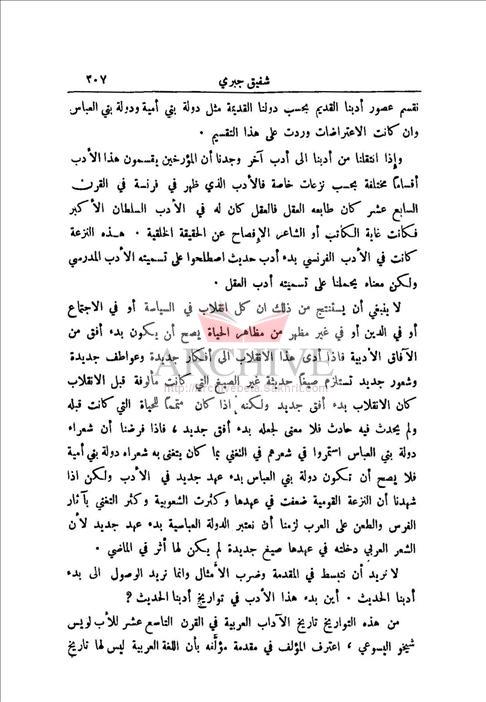 شفيق جبري ٢٠٧
نقسم عصور أدبنا القديم بحسب دولنا القديمة مثل دولة بني أمية ودولة بني العباس
وان كانت الاعتراضات وردت على هذا التقسيم .
وإذا انتقلنا من أدبنا الى أدب آخر وجدنا أن المؤرخين يقسمون هذا الأدب
أقساماً مختلفة بحسب نزعات خاصة فالأدب الذي ظهر في فرنسة في القرن
السابع عشر كان طابعه العقل فالعقل كان له في الأدب السلطان الأكبر
فكانت غاية الكاتب أو الشاعر الإفصاح عن الحقيقة الخلقية . هذه النزعة
كانت في الأدب الفرنسي بدء أدب حديث اصطلحوا على تسميته الأدب المدرسي
ولكن معناه يحملنا على تسميته أدب العقل .
لا ينبغي أن يستنتج من ذلك ان كل انقلاب في السياسة أو في الاجتماع
أو في الدين أو في غير مظهر من مظاهر الحياة يصح أن يكون بدء أفق من
الآفاق الأدبية فاذا أدى هذا الانقلاب الى أفكار جديدة وعواطف جديدة
وشعور جديد تستلزم صيغاً حديثة غير الصيغ التي كانت مألوفة قبل الانقلاب
كان الانقلاب بدء أفق جديد ولكنه اذا كان متمماً للحياة التي كانت قبله
ولم يحدث فيه حادث فلا معنى لجعله بدء أفق جديد ، فاذا فرضنا أن شعراء
دولة بني العباس استمروا في شعرهم في التغني بما كان يتغنى به شعراء دولة بني أمية
فلا يصح أن تكون دولة بني العباس بدء عهد جديد في الأدب ولكن اذا
شهدنا أن النزعة القومية ضعفت في عهدها وكثرت الشعوبية وكثر التغني بآثار
الفرس والطعن على العرب لزمنا أن نعتبر الدولة العباسية بدء عهد جديد لأن
الشعر العربي دخلته في عهدها صيغ جديدة لم يكن لها أثر في الماضي .
لا نريد أن نتبسط في المقدمة وضرب الأمثال وانما نريد الوصول الى بدء
أدبنا الحديث . أين بدء هذا الأدب في تواريخ أدبنا الحديث ؟
من هذه التواريخ تاريخ الآداب العربية في القرن التاسع عشر للأب لويس
شيخو اليسوعي ، اعترف المؤلف في مقدمة مؤلَّفه بأن اللغة العربية ليس لها تاريخ
ARCHIVE